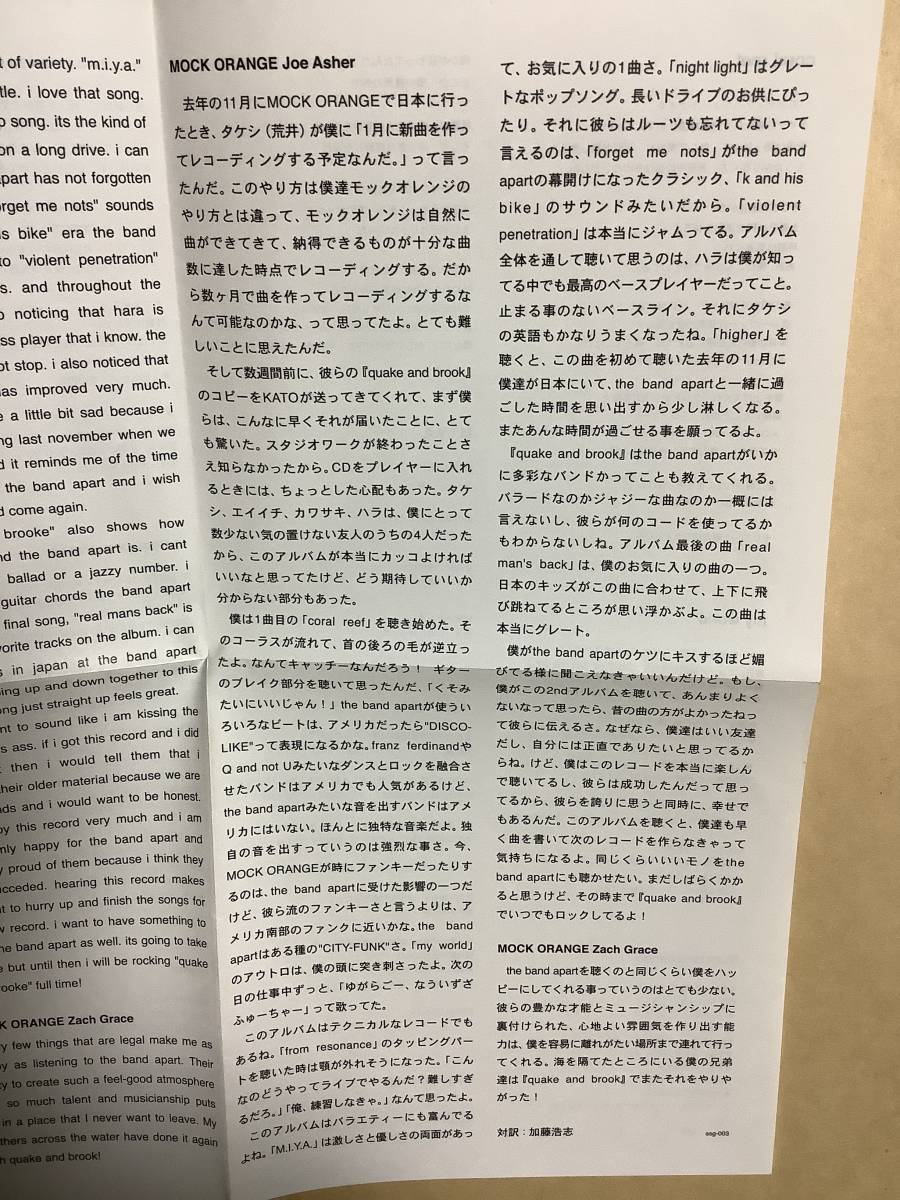 t of variety. "m.i.y.a."
tle. i love that song.
o song. its the kind of
on a long drive. i can
apart has not forgotten
orget me nots" sounds
is bike" era the band
to "violent penetration"
s. and throughout the
o noticing that hara is
ss player that i know. the
ot stop. i also noticed that
has improved very much.
e a little bit sad because i
ng last november when we
d it reminds me of the time
the band apart and i wish
d come again.
brooke" also shows how
nd the band apart is. i cant
ballad or a jazzy number. i
guitar chords the band apart
final song, "real mans back" is
vorite tracks on the album. i can
s in japan at the band apart
ping up and down together to this
ong just straight up feels great.
nt to sound like i am kissing the
s ass. if i got this record and i did
then i would tell them that i
their older material because we are
nds and i would want to be honest.
oy this record very much and i am
mly happy for the band apart and
y proud of them because i think they
cceded. hearing this record makes
t to hurry up and finish the songs for
w record. i want to have something to
he band apart as well. its going to take
e but until then i will be rocking "quake
ooke" full time!
CK ORANGE Zach Grace
ry few things that are legal make me as
y as listening to the band apart. Their
ty to create such a feel-good atmosphere
so much talent and musicianship puts
in a place that I never want to leave. My
thers across the water have done it again
h quake and brook!
MOCK ORANGE Joe Asher
去年の11月にMOCK ORANGEで日本に行っ
たとき、タケシ（荒井）が僕に「1月に新曲を作っ
てレコーディングする予定なんだ。」って言っ
たんだ。このやり方は僕達モックオレンジの
やり方とは違って、モックオレンジは自然に
曲ができてきて、納得できるものが十分な曲
数に達した時点でレコーディングする。だか
ら数ヶ月で曲を作ってレコーディングするな
んて可能なのかな、って思ってたよ。とても難
しいことに思えたんだ。
そして数週間前に、彼らの『quake and brook』
のコピーをKATOが送ってきてくれて、まず僕
らは、こんなに早くそれが届いたことに、とて
も驚いた。スタジオワークが終わったことさ
え知らなかったから。CDをプレイヤーに入れ
るときには、ちょっとした心配もあった。タケ
シ、エイイチ、カワサキ、ハラは、僕にとって
数少ない気の置けない友人のうちの4人だった
から、このアルバムが本当にカッコよければ
いいなと思ってたけど、どう期待していいか
分からない部分もあった。
僕は1曲目の「coral reef」を聴き始めた。そ
のコーラスが流れて、首の後ろの毛が逆立っ
たよ。なんてキャッチーなんだろう！ ギター
のブレイク部分を聴いて思ったんだ、「くそみ
たいにいいじゃん！」the band apartが使うい
ろいろなビートは、アメリカだったら"DISCO-
LIKE"って表現になるかな。franz ferdinandや
Q and not Uみたいなダンスとロックを融合さ
せたバンドはアメリカでも人気があるけど、
the band apartみたいな音を出すバンドはアメ
リカにはいない。ほんとに独特な音楽だよ。独
自の音を出すっていうのは強烈な事さ。今、
MOCK ORANGEが時にファンキーだったりす
るのは、the band apartに受けた影響の一つだ
けど、彼ら流のファンキーさと言うよりは、ア
メリカ南部のファンクに近いかな。the band
apartはある種の"CITY-FUNK"さ。「my world」
のアウトロは、僕の頭に突き刺さったよ。次の
日の仕事中ずっと、「ゆがらごー、なういずざ
ふゅーちゃー」って歌ってた。
このアルバムはテクニカルなレコードでも
あるね。「from resonance」のタッピングパー
トを聴いた時は顎が外れそうになった。「こん
なのどうやってライブでやるんだ？難しすぎ
るだろ。」「俺、練習しなきゃ。」なんて思ったよ。
このアルバムはバラエティーにも富んでる
よね。「M.I.Y.A.」は激しさと優しさの両面があっ
て、お気に入りの1曲さ。「night light」はグレー
トなポップソング。長いドライブのお供にぴっ
たり。それに彼らはルーツも忘れてないって
言えるのは、「forget me nots」がthe band
apartの幕開けになったクラシック、「k and his
bike」のサウンドみたいだから。「violent
penetration」は本当にジャムってる。アルバム
全体を通して聴いて思うのは、ハラは僕が知っ
てる中でも最高のベースプレイヤーだってこと。
止まる事のないベースライン。それにタケシ
の英語もかなりうまくなったね。「higher」を
聴くと、この曲を初めて聴いた去年の11月に
僕達が日本にいて、the band apartと一緒に過
ごした時間を思い出すから少し淋しくなる。
またあんな時間が過ごせる事を願ってるよ。
『quake and brook』はthe band apartがいか
に多彩なバンドかってことも教えてくれる。
バラードなのかジャジーな曲なのか一概には
言えないし、彼らが何のコードを使ってるか
もわからないしね。アルバム最後の曲「real
man's back」は、僕のお気に入りの曲の一つ。
日本のキッズがこの曲に合わせて、上下に飛
び跳ねてるところが思い浮かぶよ。この曲は
本当にグレート。
僕がthe band apartのケツにキスするほど媚
びてる様に聞こえなきゃいいんだけど。もし、
僕がこの2ndアルバムを聴いて、あんまりよく
ないなって思ったら、昔の曲の方がよかったねっ
て彼らに伝えるさ。なぜなら、僕達はいい友達
だし、自分には正直でありたいと思ってるか
らね。けど、僕はこのレコードを本当に楽しん
で聴いてるし、彼らは成功したんだって思っ
てるから、彼らを誇りに思うと同時に、幸せで
もあるんだ。このアルバムを聴くと、僕達も早
く曲を書いて次のレコードを作らなきゃって
気持ちになるよ。同じくらいいいモノをthe
band apartにも聴かせたい。まだしばらくかか
ると思うけど、その時まで『quake and brook』
でいつでもロックしてるよ！
MOCK ORANGE Zach Grace
the band apartを聴くのと同じくらい僕をハッ
ピーにしてくれる事っていうのはとても少ない。
彼らの豊かな才能とミュージシャンシップに
裏付けられた、心地よい雰囲気を作り出す能
力は、僕を容易に離れがたい場所まで連れて行っ
てくれる。海を隔てたところにいる僕の兄弟
達は『quake and brook』でまたそれをやりや
がった！
対訳：加藤浩志
asg-003